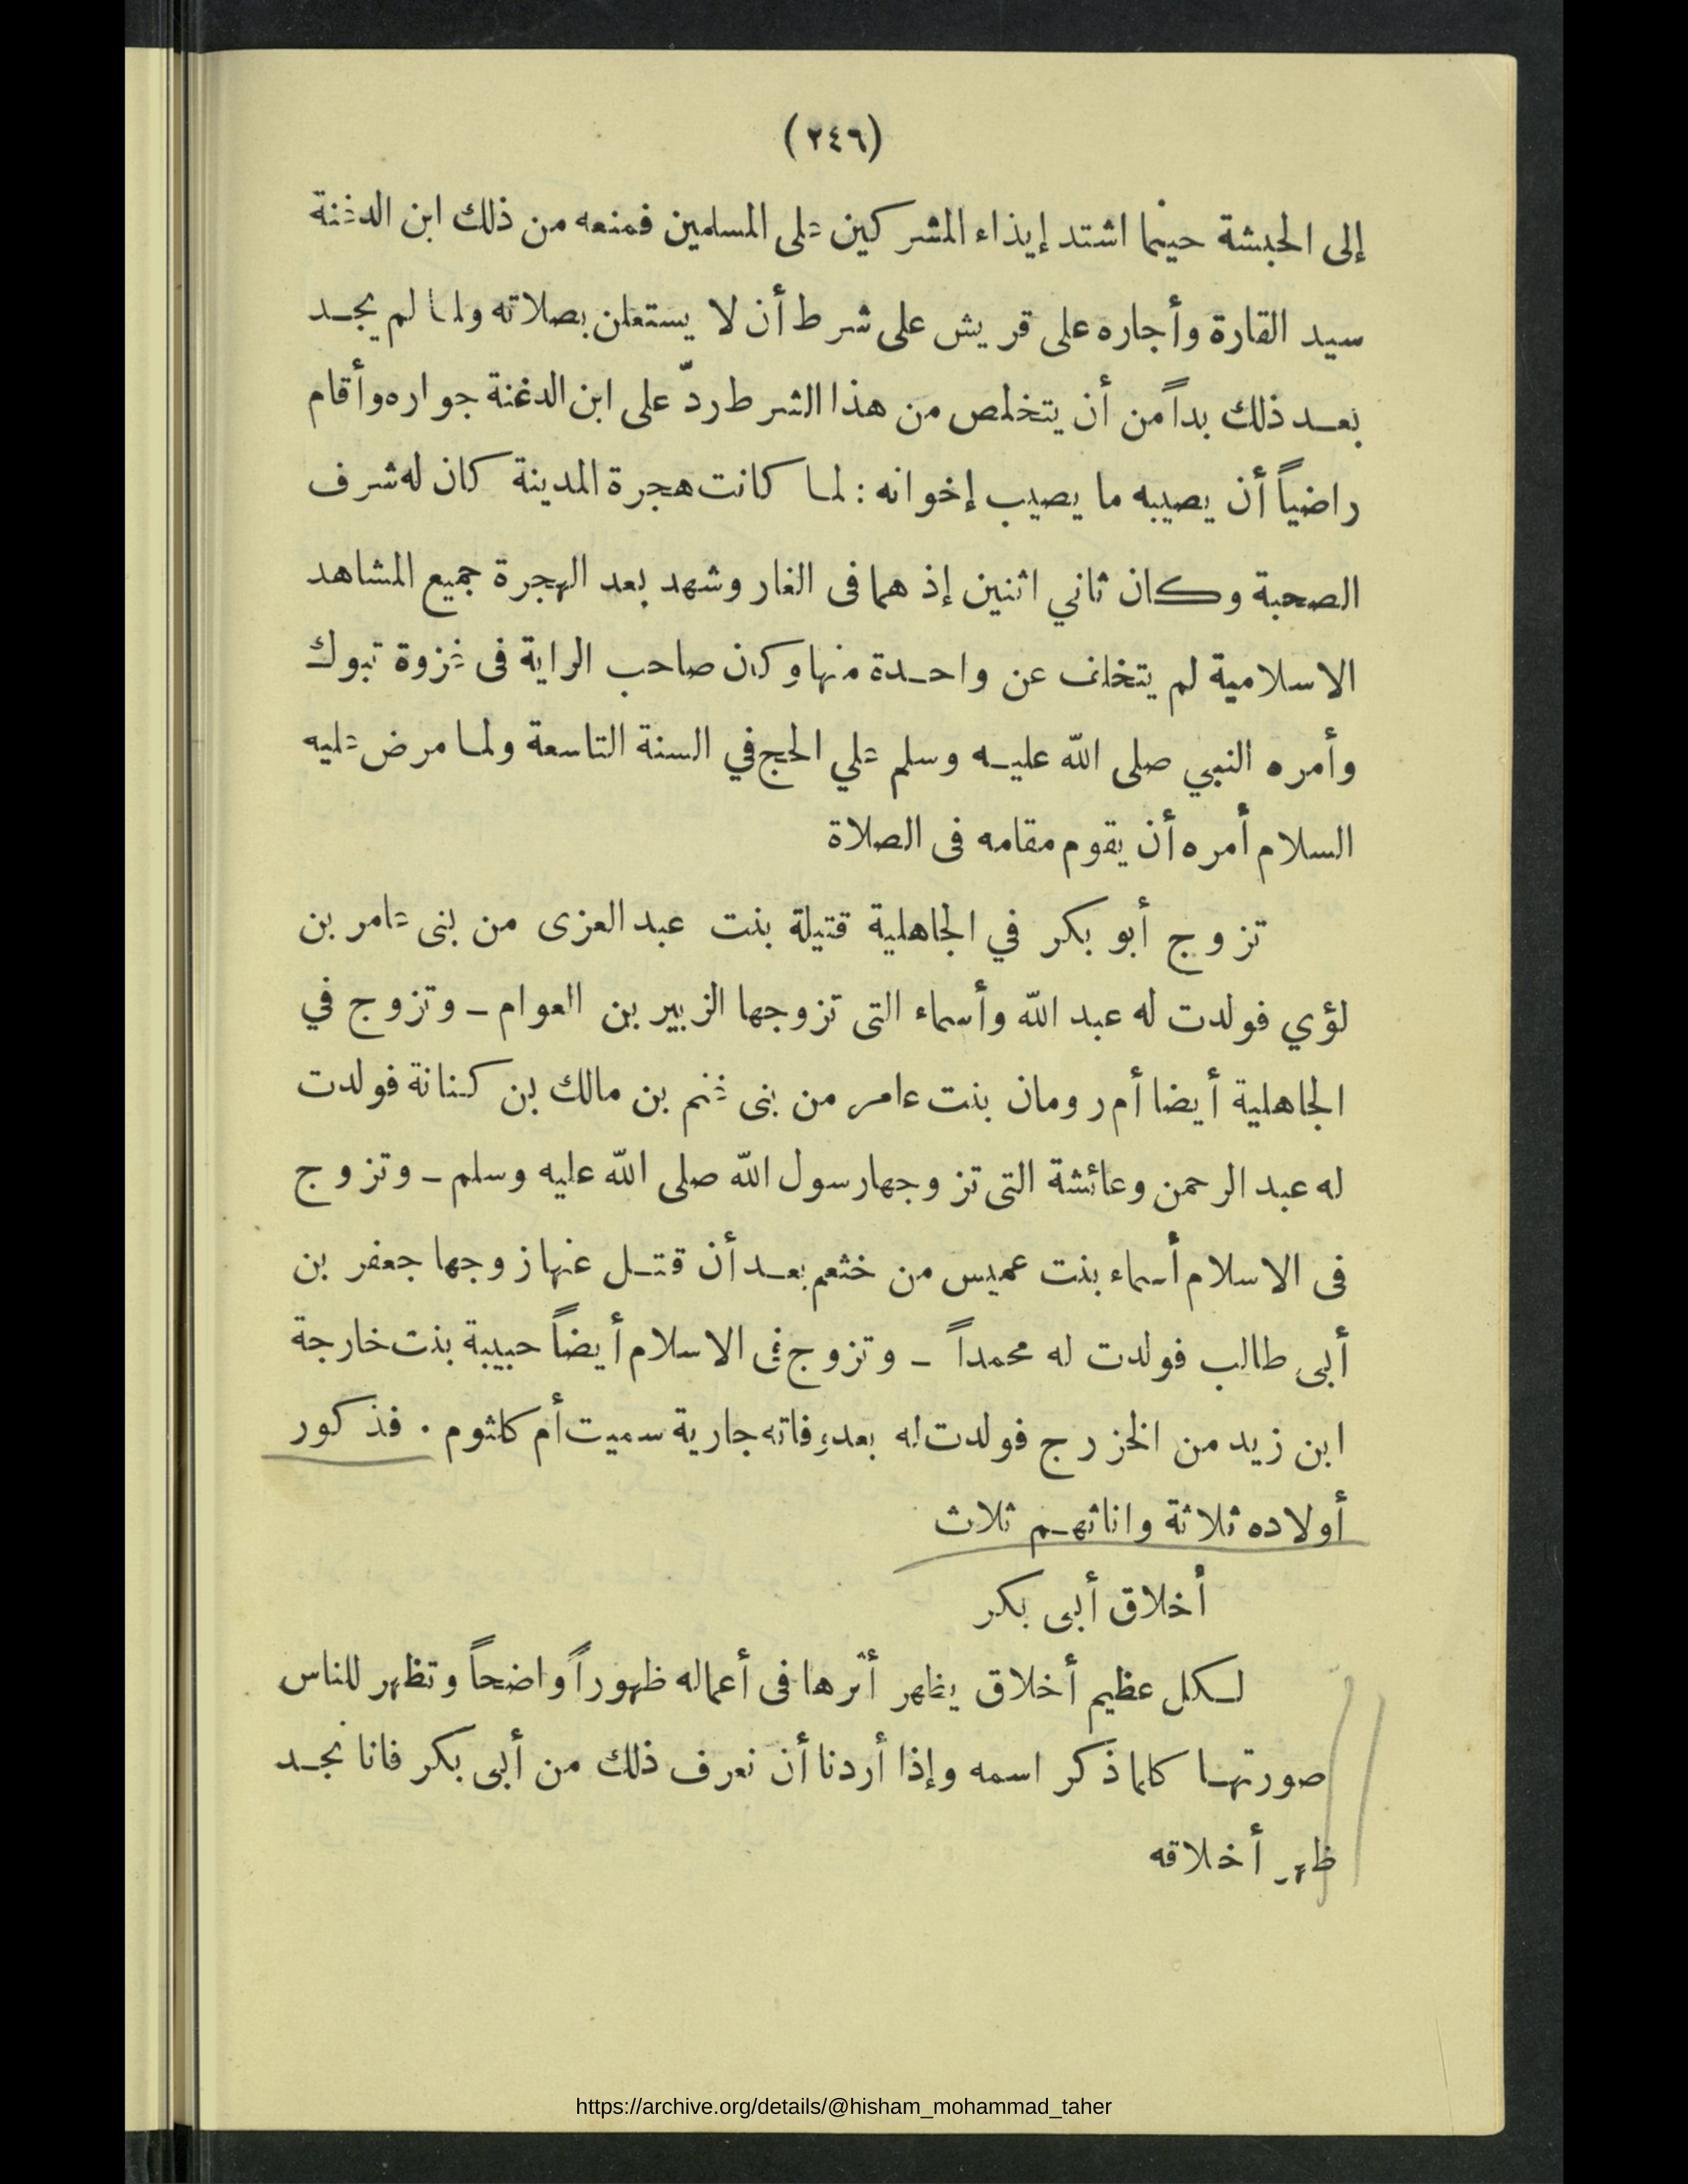 (٢٤٦)
إلى الحبشة حينما اشتد إيذاء المشركين على المسلمين فمنعه من ذلك ابن الدغنة
سيد القارة وأجاره على قريش على شرط أن لا يستعلن بصلاته ولما لم يجد
بعد ذلك بداً من أن يتخلص من هذا الشرط ردّ على ابن الدغنة جواره وأقام
راضياً أن يصيبه ما يصيب إخوانه : لما كانت هجرة المدينة كان له شرف
الصحبة وكان ثاني اثنين إذ هما فى الغار وشهد بعد الهجرة جميع المشاهد
الاسلامية لم يتخلف عن واحدة منها وكان صاحب الراية فى غزوة تبوك
وأمره النبي صلى الله عليه وسلم علي الحج في السنة التاسعة ولما مرض عليه
السلام أمره أن يقوم مقامه فى الصلاة
تزوج أبو بكر في الجاهلية قتيلة بنت عبد العزى من بنى عامر بن
لؤي فولدت له عبد الله وأسماء التى تزوجها الزبير بن العوام ــ وتزوج في
الجاهلية أيضا أم رومان بنت عامر من بنى غنم بن مالك بن كنانة فولدت
له عبد الرحمن وعائشة التى تزوجها رسول الله صلى الله عليه وسلم ــ وتزوج
فى الاسلام أسماء بنت عميس من خثعم بعد أن قتل عنها زوجها جعفر بن
أبى طالب فولدت له محمداً ــ وتزوج فى الاسلام أيضاً حبيبة بنت خارجة
ابن زيد من الخزرج فولدت له بعد وفاته جارية سميت أم كلثوم . فذكور
أولاده ثلاثة واناثهم ثلاث
أخلاق أبى بكر
لكل عظيم أخلاق يظهر أثرها فى أعماله ظهوراً واضحاً وتظهر للناس
صورتها كلما ذكر اسمه وإذا أردنا أن نعرف ذلك من أبى بكر فانا نجد
ظهر أخلاقه
https://archive.org/details/@hisham_mohammad_taher